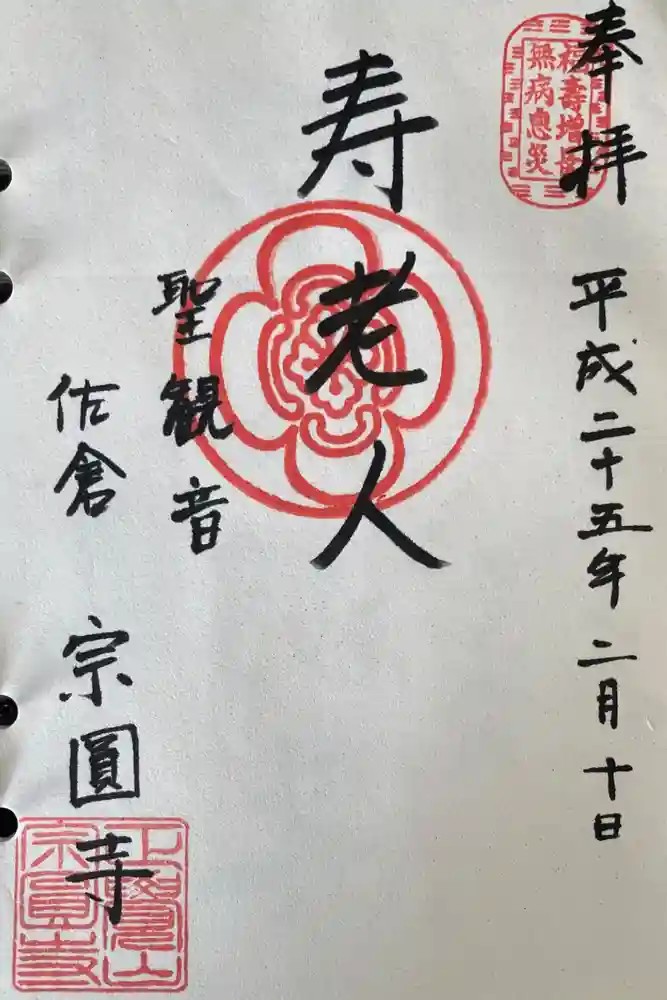 奉拝
福壽増長
無病息災
平成二十五年二月十日
寿老人
聖観音
佐倉 宗圓寺
正覺山
宗圓寺